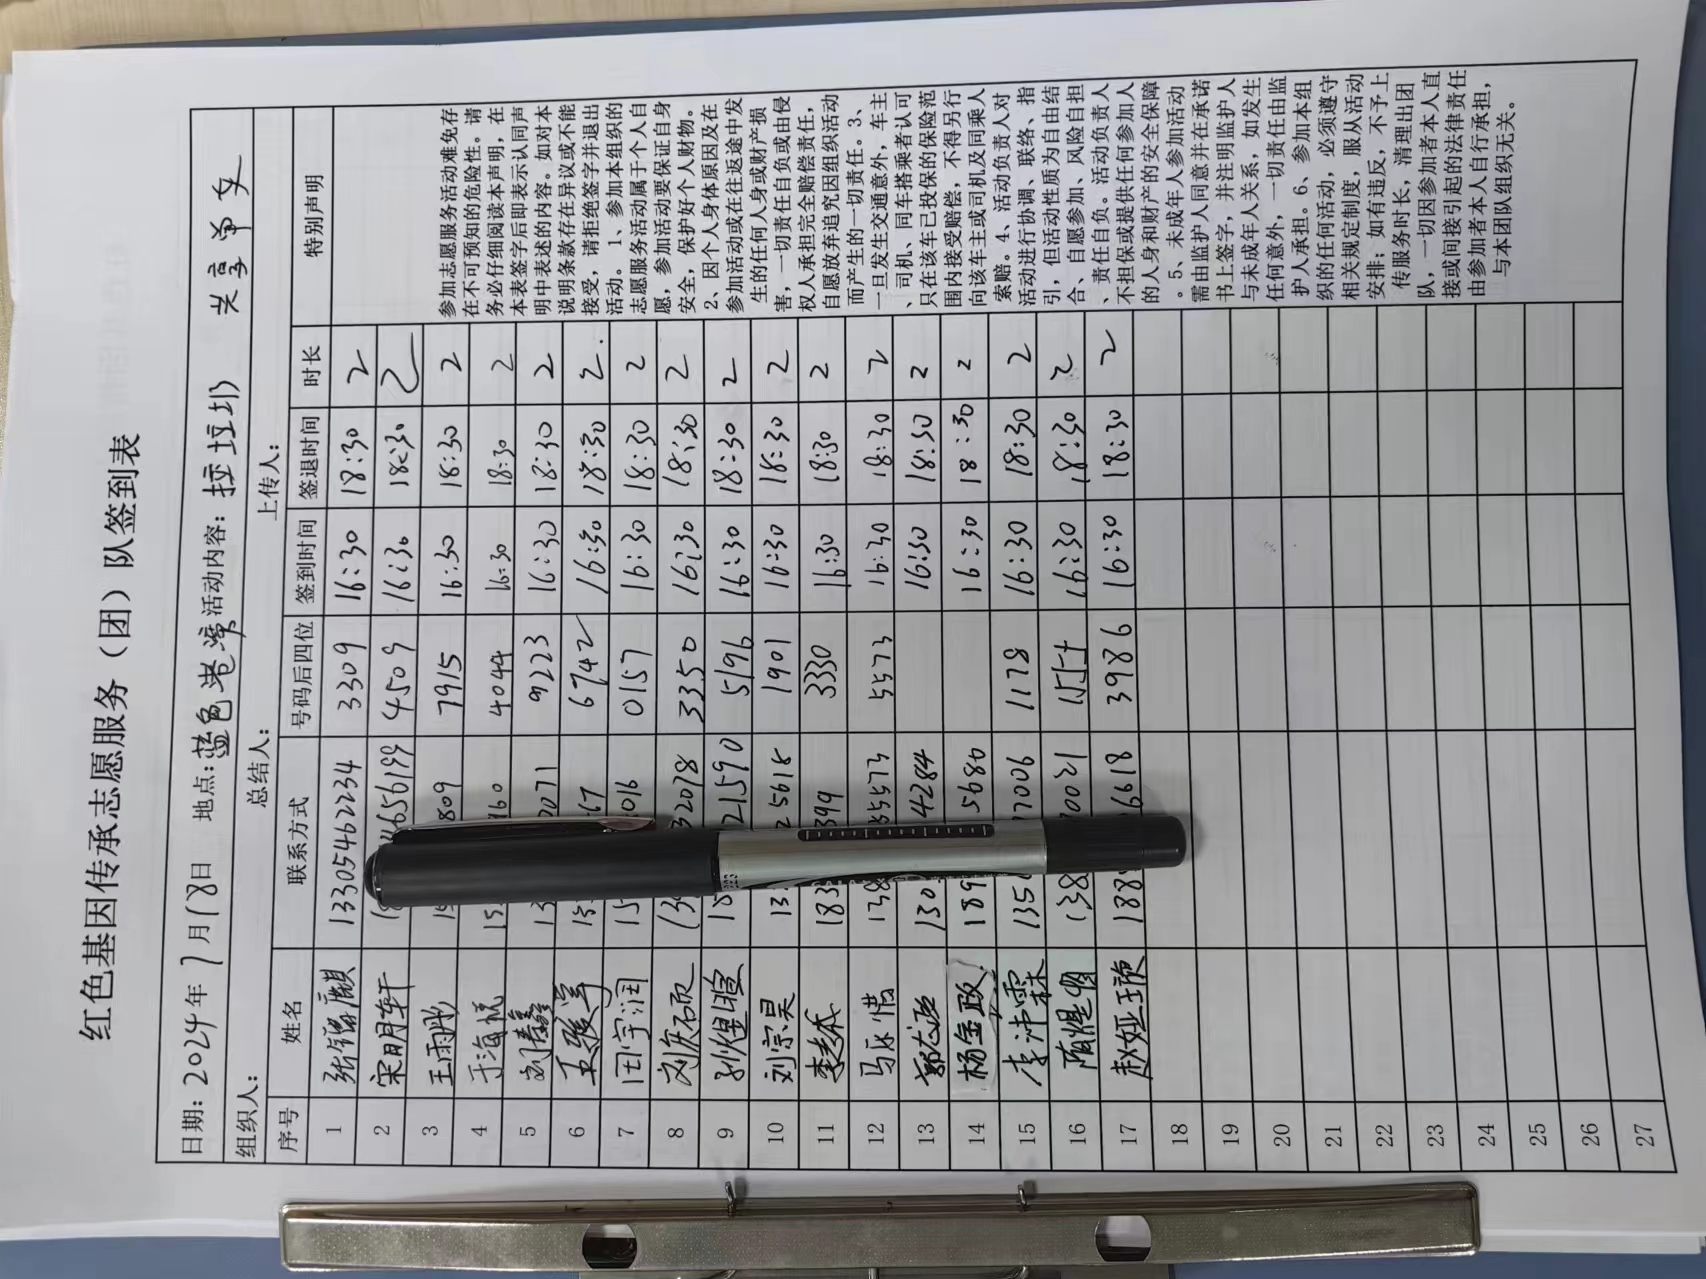 红色基因传承志愿服务（团）队签到表
日期：2024年7月18日 地点：蓝色港湾 活动内容：拉垃圾 共享单车
组织人： 总结人： 上传人：
序号 姓名 联系方式 号码后四位 签到时间 签退时间 时长 特别声明
1 13305462234 3309 16:30 18:30 2
2 宋明轩 4509 16:30 18:30 2
3 王雨彤 7915 16:30 18:30 2
4 于海悦 4044 16:30 18:30 2
5 刘鑫 9223 16:30 18:30 2
6 6742 16:30 18:30 2.
7 田宇润 0157 16:30 18:30 2
8 3350 16:30 18:30 2
9 孙煜暄 5196 16:30 18:30 2
10 刘宗昊 1901 16:30 18:30 2
11 3330 16:30 18:30 2
12 马永惜 5573 16:30 18:30 2
13 16:30 18:30 2
14 杨金政 16:30 18:30 2
15 李沛霖 1178 16:30 18:30 2
16 16:30 18:30 2
17 赵娅颀 3986 16:30 18:30 2
18
19
20
21
22
23
24
25
26
27
参加志愿服务活动难免存
在不可预知的危险性。请
务必仔细阅读本声明，在
本表签字后即表示认同声
明中表述的内容。如对本
说明条款存在异议或不能
接受，请拒绝签字并退出
活动。1、参加本组织的
志愿服务活动属于个人自
愿，参加活动要保证自身
安全，保护好个人财物。
2、因个人身体原因及在
参加活动或在往返途中发
生的任何人身或财产损
害，一切责任自负或由侵
权人承担完全赔偿责任，
自愿放弃追究因组织活动
而产生的一切责任。3、
一旦发生交通意外，车主
、司机、同车搭乘者认可
只在该车已投保的保险范
围内接受赔偿，不得另行
向该车主或司机及同乘人
索赔。4、活动负责人对
活动进行协调、联络、指
引，但活动性质为自由结
合、自愿参加、风险自担
、责任自负。活动负责人
不担保或提供任何参加人
的人身和财产的安全保障
。5、未成年人参加活动
需由监护人同意并在承诺
书上签字，并注明监护人
与未成年人关系，如发生
任何意外，一切责任由监
护人承担。6、参加本组
织的任何活动，必须遵守
相关规定制度，服从活动
安排；如有违反，不予上
传服务时长，清理出团
队，一切因参加者本人直
接或间接引起的法律责任
由参加者本人自行承担，
与本团队组织无关。